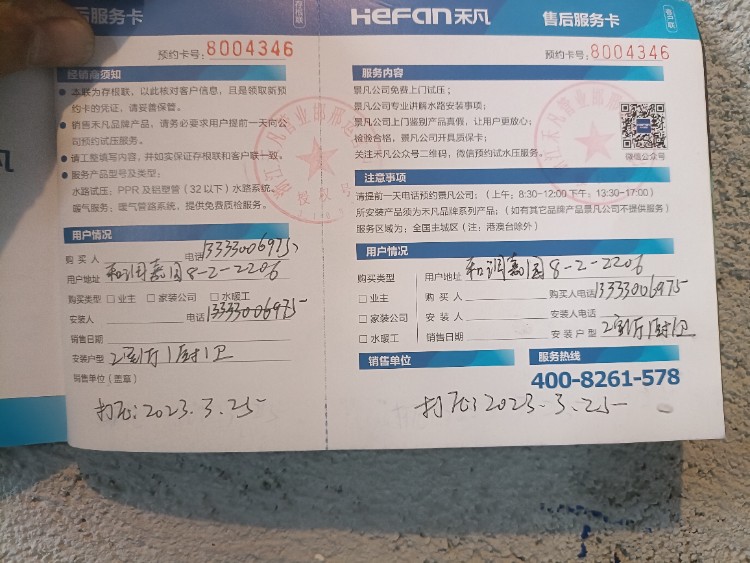 售后服务卡
存根联
预约卡号: 8004346
经销商须知
● 本联为存根联、以此核对客户信息，且是领取新预
约卡的凭证，请妥善保管。
● 销售禾凡品牌产品，请务必要求用户提前一天向公
司预约试压服务。
● 请工整填写内容，并如实保证存根联和客户联一致。
● 服务产品型号及类型:
水路试压: PPR及铝塑管（32以下）水路系统。
暖气服务: 暖气管路系统，提供免费质检服务。
用户情况
购买人 电话13333006975
用户地址 和润嘉园8-2-2206
购买类型 □业主 □家装公司 □水暖工
安装人 电话13333006975
销售日期
安装户型 2室1厅1厨1卫
销售单位（盖章）
打压: 2023.3.25
HEFAN禾凡
售后服务卡
预约卡号: 8004346
服务内容
景凡公司免费上门试压;
景凡公司专业讲解水路安装事项;
景凡公司上门鉴别产品真假，让用户更放心;
检验合格，景凡公司开具质保卡;
关注禾凡公众号二维码，微信预约试水压服务。
微信公众号
注意事项
请提前一天电话预约景凡公司:（上午: 8:30-12:00 下午: 13:30-17:00）
所安装产品须为禾凡品牌系列产品;（如有其它品牌产品景凡公司不提供服务）
服务区域为: 全国主城区（注: 港澳台除外）
用户情况
购买类型 用户地址 和润嘉园8-2-2206
□业主 购买人 购买人电话13333006975
□家装公司 安装人 安装人电话
□水暖工 销售日期 安装户型 2室1厅1厨1卫
销售单位 服务热线
400-8261-578
打压: 2023.3.25
禾凡